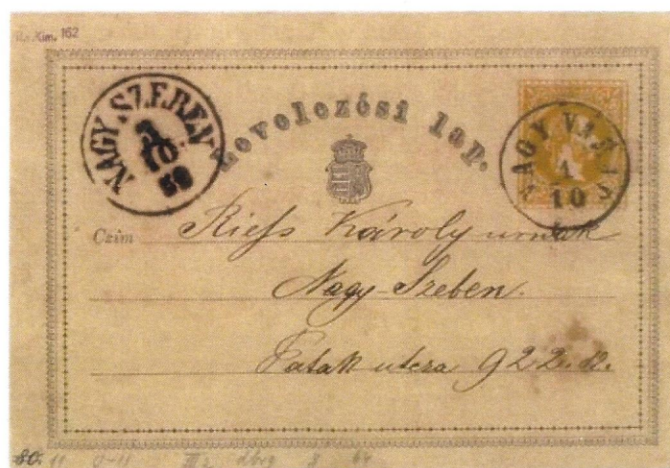 162
NAGY SZEBEN
3
10
69
Levelezési lap.
NAGY VÁ
1
10
Czim
Riefs Károly urnak
Nagy-Szeben.
Patak utcza 922.
80.